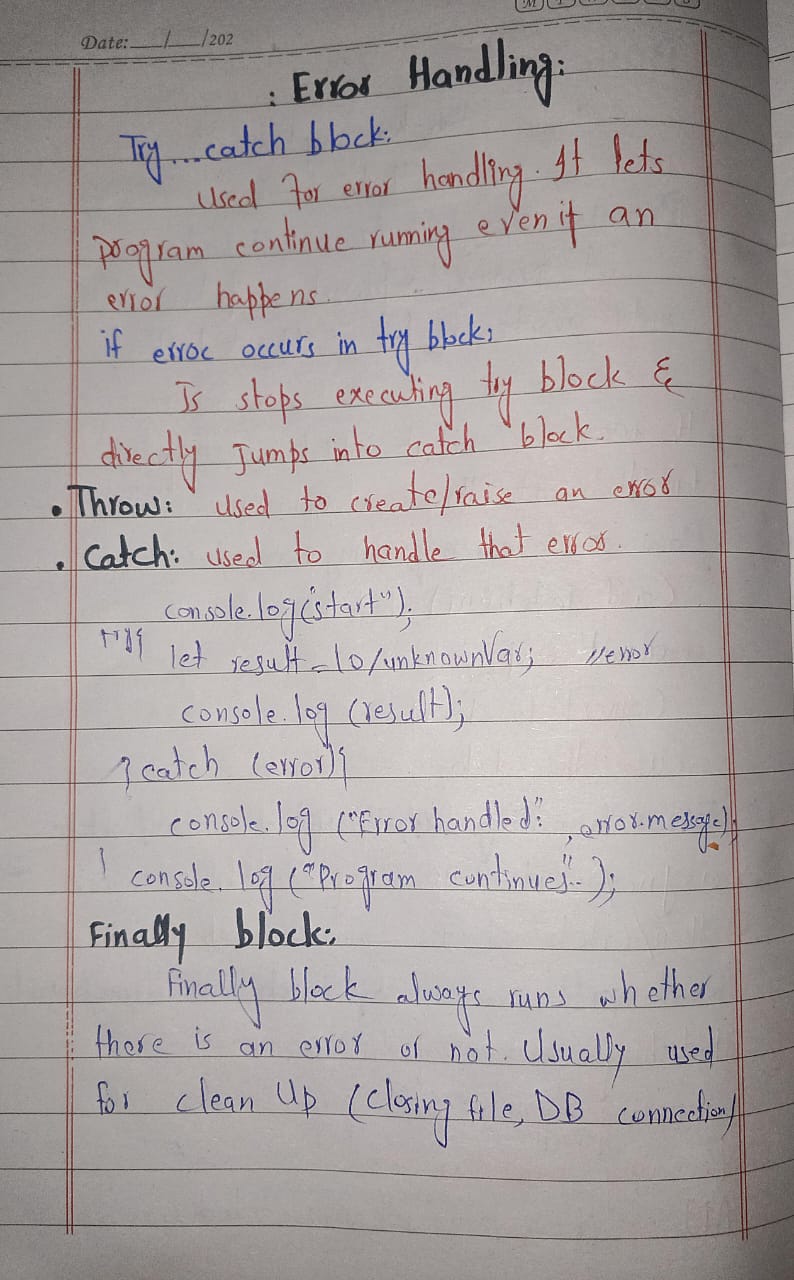 Date: __/__/202
: Error Handling:
Try...catch block:
Used for error handling. It lets
program continue running even if an
error happens.
if error occurs in try block:
Js stops executing try block &
directly Jumps into catch block.
• Throw: used to create/raise an error
• Catch: used to handle that error.
console.log("start");
try{
let result = 10/unknownVar; //error
console.log (result);
} catch (error){
console.log ("Error handled:", error.message);
} console.log ("Program continues...");
Finally block:
Finally block always runs whether
there is an error or not. Usually used
for clean Up (closing file, DB connection)